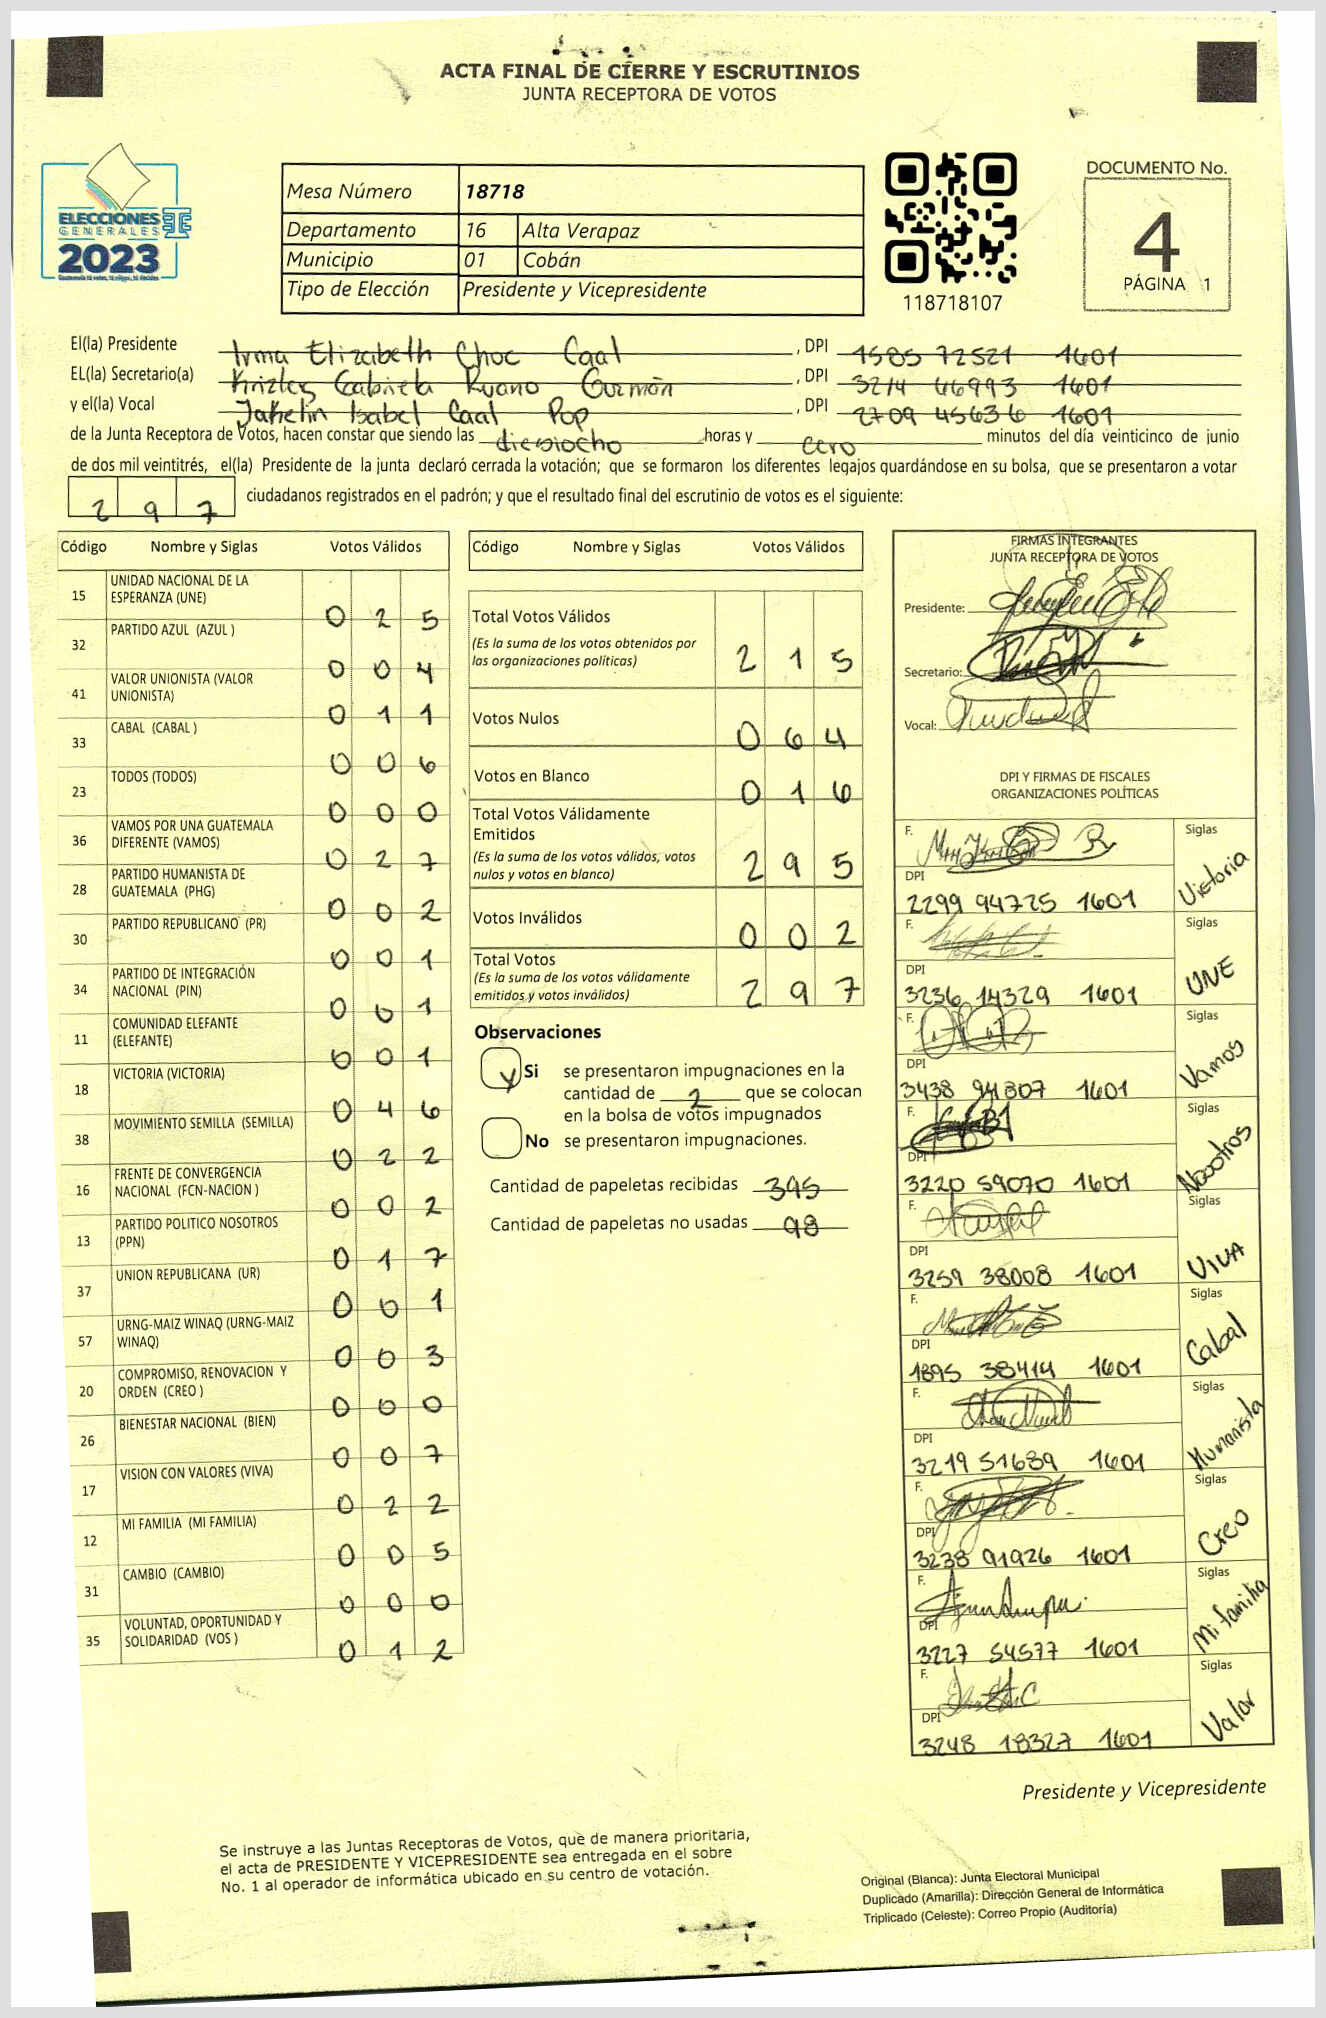 ACTA FINAL DE CIERRE Y ESCRUTINIOS
JUNTA RECEPTORA DE VOTOS
ELECCIONES
GENERALES
2023
Mesa Número 18718
Departamento 16 Alta Verapaz
Municipio 01 Cobán
Tipo de Elección Presidente y Vicepresidente
118718107
DOCUMENTO No.
4
PÁGINA 1
El(la) Presidente Irma Elizabeth Choc Caal , DPI 1585 72521 1601
EL(la) Secretario(a) Gabriela Ruano Guzmán , DPI 3214 46993 1601
y el(la) Vocal Jakelin Isabel Caal Pop , DPI 2709 45636 1601
de la Junta Receptora de Votos, hacen constar que siendo las diesiocho horas y cero minutos del día veinticinco de junio
de dos mil veintitrés, el(la) Presidente de la junta declaró cerrada la votación; que se formaron los diferentes legajos guardándose en su bolsa, que se presentaron a votar
2 9 7 ciudadanos registrados en el padrón; y que el resultado final del escrutinio de votos es el siguiente:
Código Nombre y Siglas Votos Válidos
15 UNIDAD NACIONAL DE LA ESPERANZA (UNE) 0 2 5
32 PARTIDO AZUL (AZUL ) 0 0 4
41 VALOR UNIONISTA (VALOR UNIONISTA) 0 1 1
33 CABAL (CABAL ) 0 0 6
23 TODOS (TODOS) 0 0 0
36 VAMOS POR UNA GUATEMALA DIFERENTE (VAMOS) 0 2 7
28 PARTIDO HUMANISTA DE GUATEMALA (PHG) 0 0 2
30 PARTIDO REPUBLICANO (PR) 0 0 1
34 PARTIDO DE INTEGRACIÓN NACIONAL (PIN) 0 0 1
11 COMUNIDAD ELEFANTE (ELEFANTE) 0 0 1
18 VICTORIA (VICTORIA) 0 4 6
38 MOVIMIENTO SEMILLA (SEMILLA) 0 2 2
16 FRENTE DE CONVERGENCIA NACIONAL (FCN-NACION ) 0 0 2
13 PARTIDO POLITICO NOSOTROS (PPN) 0 1 7
37 UNION REPUBLICANA (UR) 0 0 1
57 URNG-MAIZ WINAQ (URNG-MAIZ WINAQ) 0 0 3
20 COMPROMISO, RENOVACION Y ORDEN (CREO ) 0 0 0
26 BIENESTAR NACIONAL (BIEN) 0 0 7
17 VISION CON VALORES (VIVA) 0 2 2
12 MI FAMILIA (MI FAMILIA) 0 0 5
31 CAMBIO (CAMBIO) 0 0 0
35 VOLUNTAD, OPORTUNIDAD Y SOLIDARIDAD (VOS ) 0 1 2
Código Nombre y Siglas Votos Válidos
Total Votos Válidos
(Es la suma de los votos obtenidos por
las organizaciones políticas) 2 1 5
Votos Nulos 0 6 4
Votos en Blanco 0 1 6
Total Votos Válidamente
Emitidos
(Es la suma de los votos válidos, votos
nulos y votos en blanco) 2 9 5
Votos Inválidos 0 0 2
Total Votos
(Es la suma de los votos válidamente
emitidos y votos inválidos) 2 9 7
Observaciones
Si se presentaron impugnaciones en la
cantidad de 2 que se colocan
en la bolsa de votos impugnados
No se presentaron impugnaciones.
Cantidad de papeletas recibidas 395
Cantidad de papeletas no usadas 98
FIRMAS INTEGRANTES
JUNTA RECEPTORA DE VOTOS
Presidente:
Secretario:
Vocal:
DPI Y FIRMAS DE FISCALES
ORGANIZACIONES POLÍTICAS
F. Siglas
DPI
2299 94725 1601 Victoria
F. Siglas
DPI
3236 14329 1601 UNE
F. Siglas
DPI
3438 94807 1601 Vamos
F. Siglas
DPI
3220 59070 1601 Nosotros
F. Siglas
DPI
3259 38008 1601 VIVA
F. Siglas
DPI
1895 38414 1601 Cabal
F. Siglas
DPI
3219 51689 1601 Humanista
F. Siglas
DPI
3238 91926 1601 Creo
F. Siglas
DPI
3227 54577 1601 Mi familia
F. Siglas
DPI
3248 18327 1601 Valor
Presidente y Vicepresidente
Se instruye a las Juntas Receptoras de Votos, que de manera prioritaria,
el acta de PRESIDENTE Y VICEPRESIDENTE sea entregada en el sobre
No. 1 al operador de informática ubicado en su centro de votación.
Original (Blanca): Junta Electoral Municipal
Duplicado (Amarilla): Dirección General de Informática
Triplicado (Celeste): Correo Propio (Auditoría)